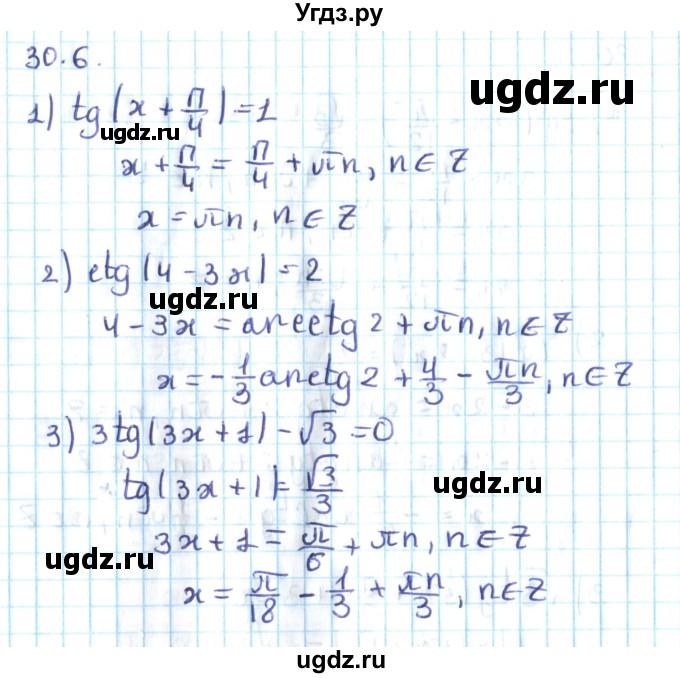 Угдз.ру
30.6.
ugdz.ru
1) tg(x + π/4) = 1
ugdz.ru
x + π/4 = π/4 + πn, n ∈ Z
x = πn, n ∈ Z
2) ctg(4 - 3x) = 2
ugdz.ru
4 - 3x = arcctg 2 + πn, n ∈ Z
x = -1/3 arcctg 2 + 4/3 - πn/3, n ∈ Z
3) 3tg(3x + 1) - √3 = 0
tg(3x + 1) = √3/3
ugdz.ru
3x + 1 = π/6 + πn, n ∈ Z
ugdz.ru
x = π/18 - 1/3 + πn/3, n ∈ Z
ugdz.ru